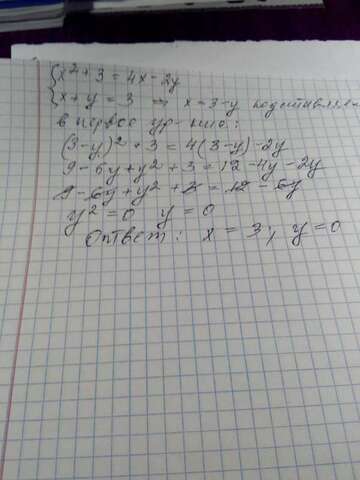 x² + 3 = 4x - 2y
x + y = 3 => x = 3 - y подставляем
в первое ур-ние:
(3-y)² + 3 = 4(3-y) - 2y
9 - 6y + y² + 3 = 12 - 4y - 2y
9 - 6y + y² + 3 = 12 - 6y
y² = 0 y = 0
Ответ: x = 3, y = 0